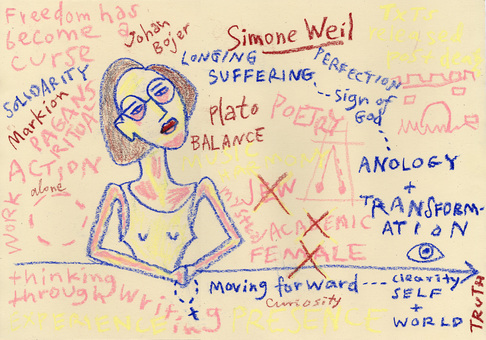 Freedom has
become a
curse
Johan
Bojer
Simone Weil
SOLIDARITY
Markion
PAGANS
RITUALS
ACTION
alone
WORK
LONGING
SUFFERING
PERFECTION
sign of
God
Plato
BALANCE
POETRY
ANOLOGY
+
TRANSFORM-
ATION
JEW
ACADEMIC
FEMALE
thinking
through writing
EXPERIENCE
PRESENCE
Moving forward
curiosity
clearity
SELF
+
WORLD
TRUTH